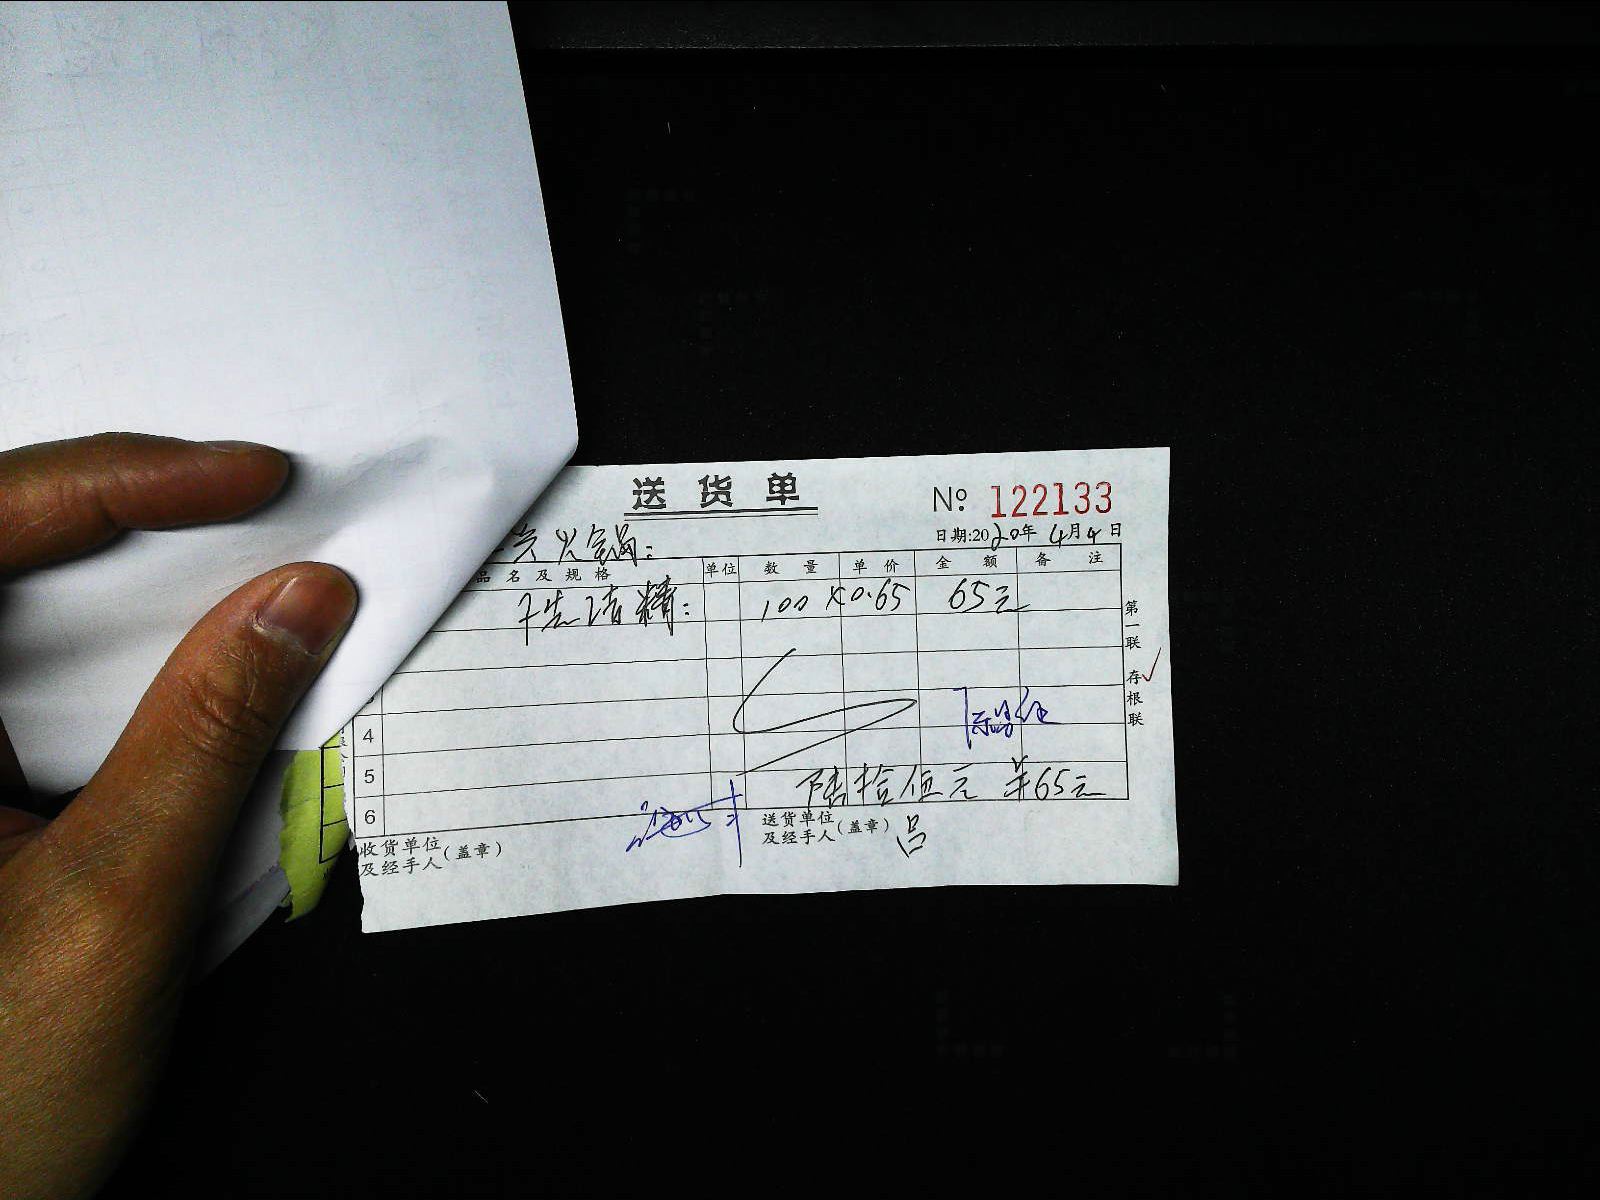 送货单
№ 122133
火锅:
日期:2020年4月4日
品名及规格 单位 数量 单价 金额 备注
洗洁精: 100 ×0.65 65元
4
5
6
陆拾伍元 ¥65元
收货单位及经手人(盖章)
送货单位及经手人(盖章) 吕
第一联 存根联